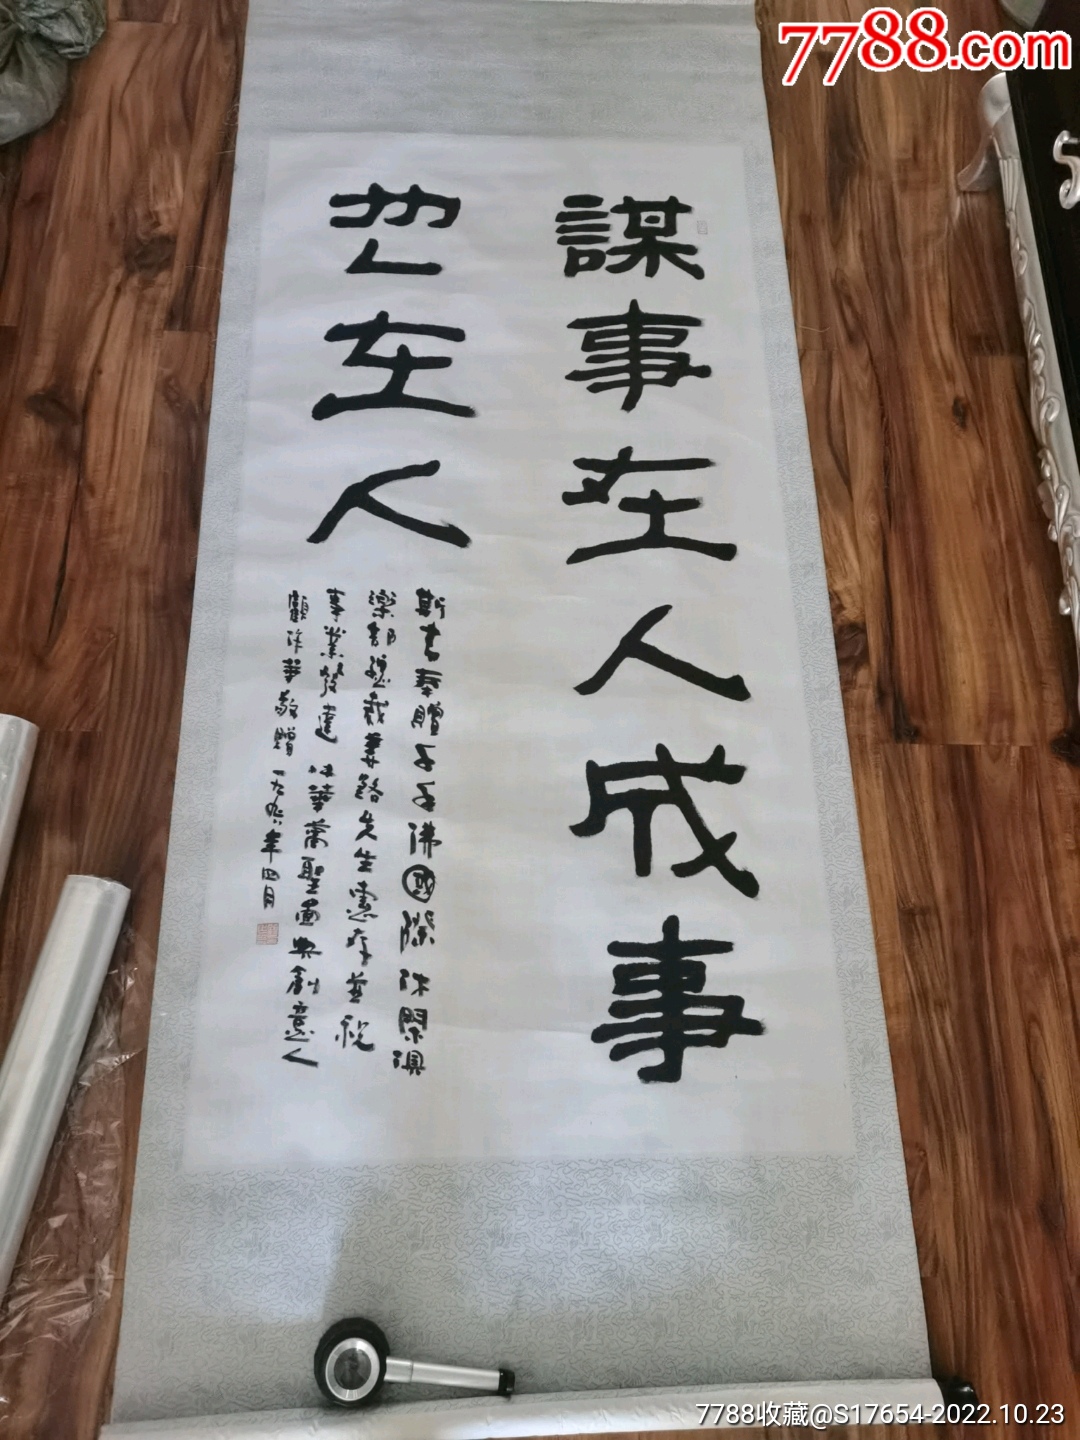 7788.com
謀事在人成事
也在人
奉贈千千佛國際休閑俱
樂部總裁姜路先生惠存並祝
事業發達 中華萬聖圖典創意人
顧華敬贈 一九九年四月
7788收藏@S17654-2022.10.23